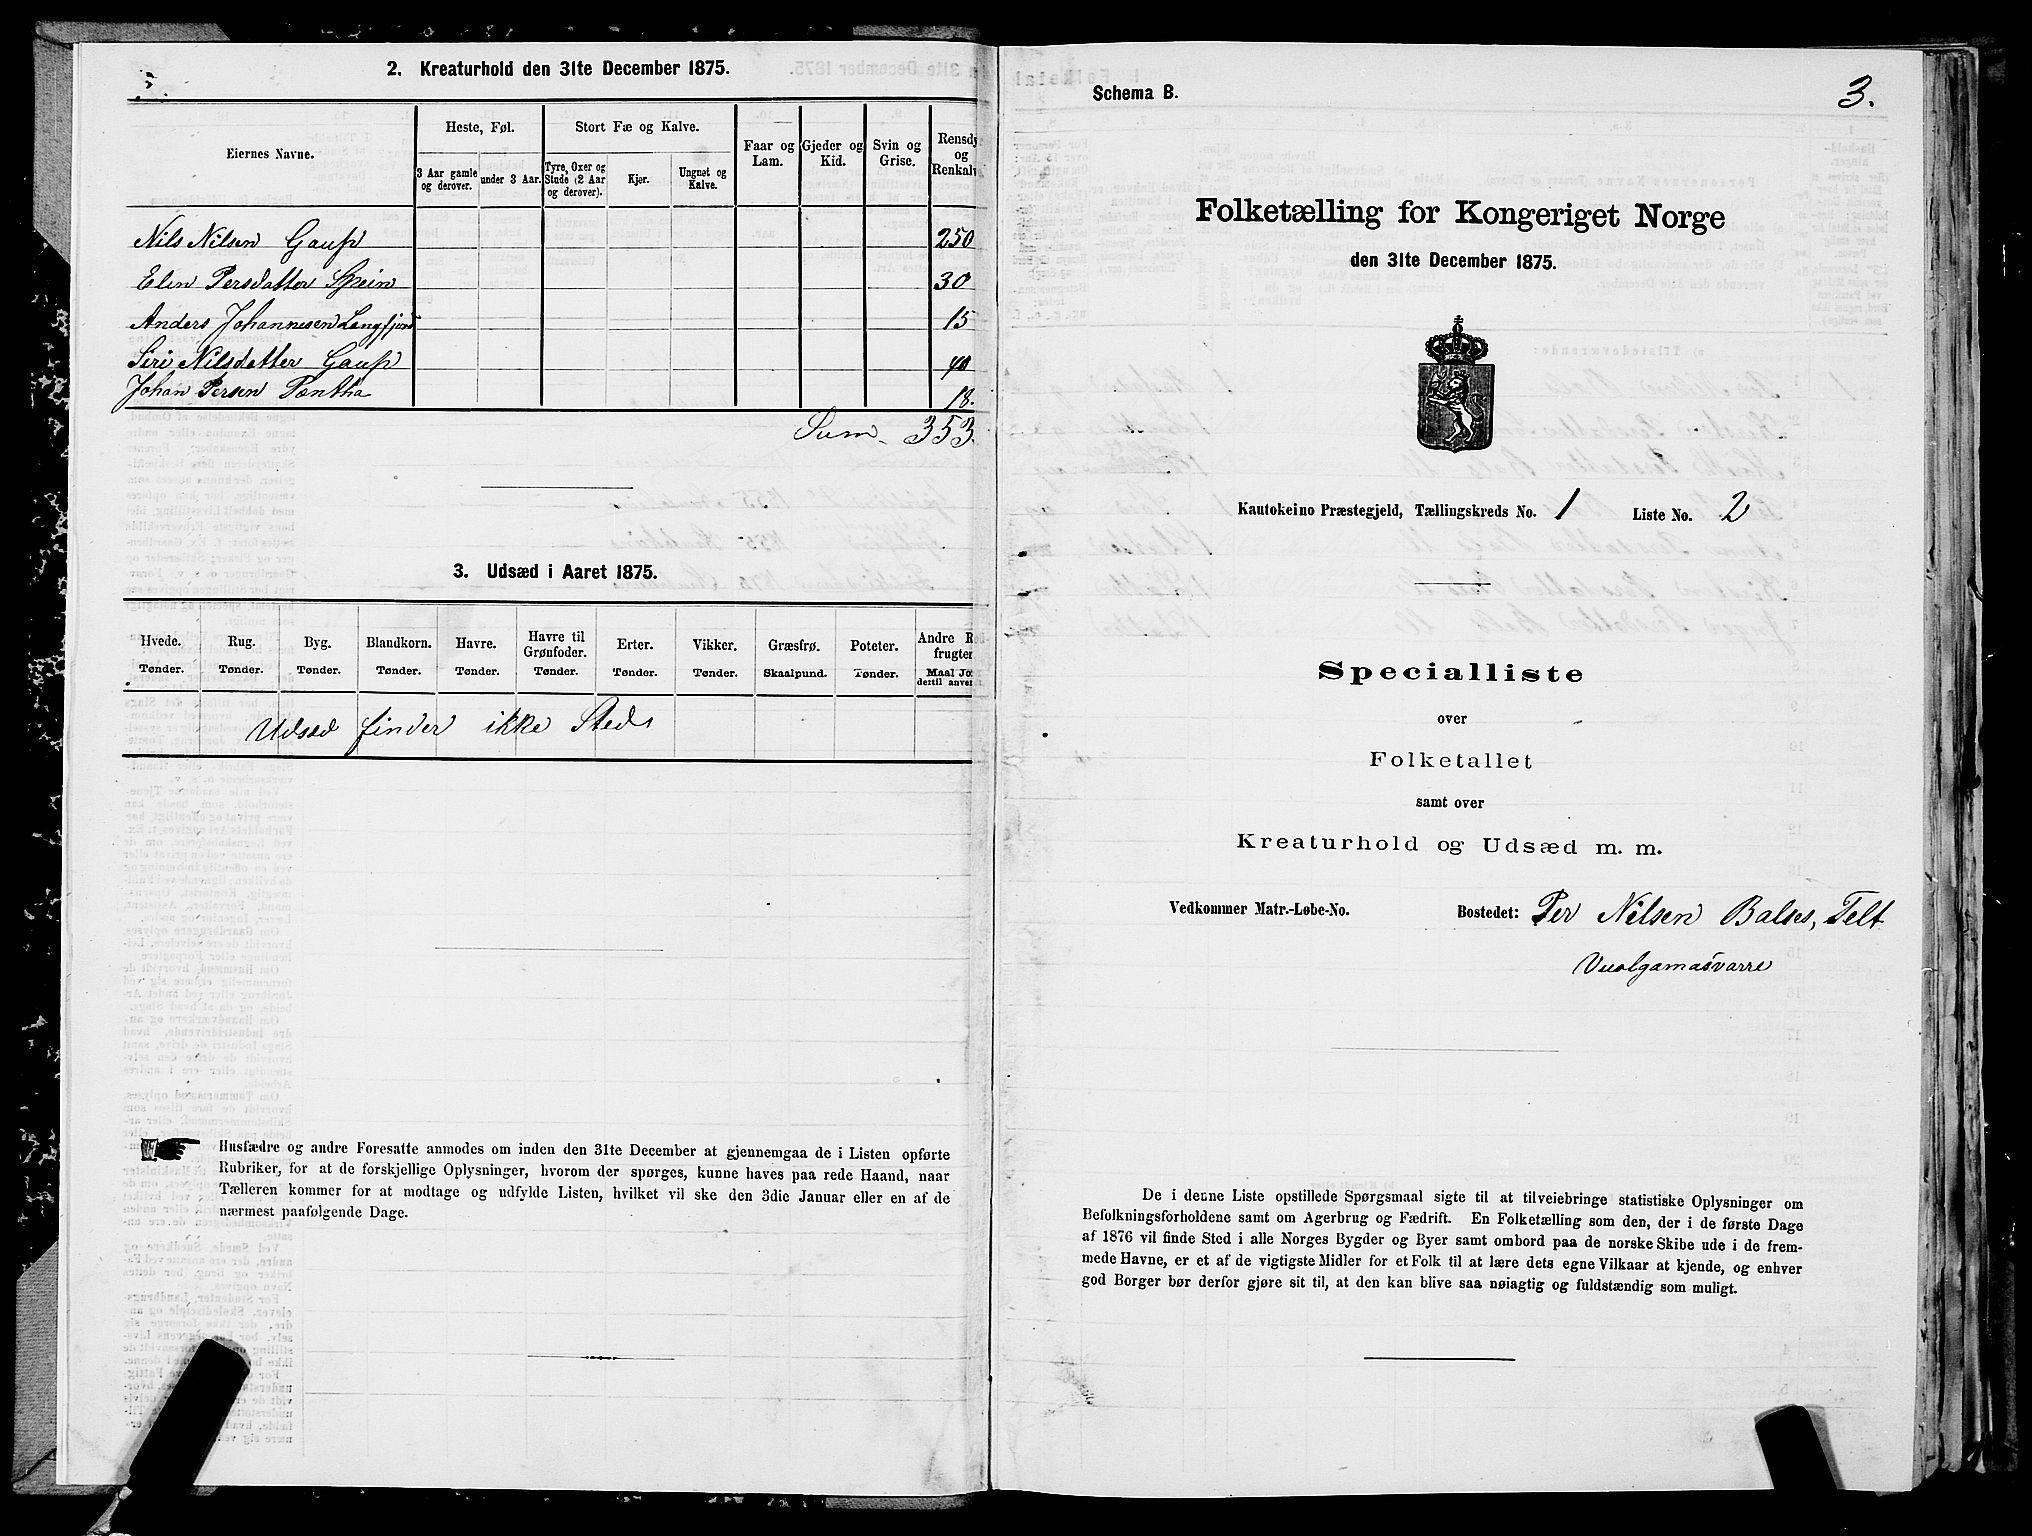 2. Kreaturhold den 31te December 1875.
Eiernes Navne.
Heste, Føl.
Stort Fæ og Kalve.
Faar og
Lam.
Gjeder og
Kid.
Svin og
Grise.
Rensdy
og
Renkalv
3 Aar gamle
og derover.
under 3 Aar.
Tyre, Oxer og
Stude (2 Aar
og derover).
Kjør.
Ungnøt og
Kalve.
Nils Nilsen Gaup 250
Elen Persdatter Spein 30
Anders Johannesen Langfjord 15
Siri Nilsdatter Gaup 40
Johan Persen Pæntha 18.
Sum 353
3. Udsæd i Aaret 1875.
Hvede. Rug. Byg. Blandkorn. Havre. Havre til
Grønfoder. Erter. Vikker. Græsfrø. Poteter. Andre Ro
frugter
Tønder. Tønder. Tønder. Tønder. Tønder. Tønder. Tønder. Tønder. Skaalpund. Tønder. Maal Jo
dertil anven
Udsæd finder ikke Sted
Husfædre og andre Foresatte anmodes om inden den 31te December at gjennemgaa de i Listen opførte
Rubriker, for at de forskjellige Oplysninger, hvorom der spørges, kunne haves paa rede Haand, naar
Tælleren kommer for at modtage og udfylde Listen, hvilket vil ske den 3die Januar eller en af de
nærmest paafølgende Dage.
Schema B.
3.
Folketælling for Kongeriget Norge
den 31te December 1875.
Kautokeino Præstegjeld, Tællingskreds No. 1 Liste No. 2
Specialliste
over
Folketallet
samt over
Kreaturhold og Udsæd m. m.
Vedkommer Matr.-Løbe-No. Bostedet: Per Nilsen Balses, Telt
Vuolgamasvarre
De i denne Liste opstillede Spørgsmaal sigte til at tilveiebringe statistiske Oplysninger om
Befolkningsforholdene samt om Agerbrug og Fædrift. En Folketælling som den, der i de første Dage
af 1876 vil finde Sted i alle Norges Bygder og Byer samt ombord paa de norske Skibe ude i de frem-
mede Havne, er et af de vigtigste Midler for et Folk til at lære dets egne Vilkaar at kjende, og enhver
god Borger bør derfor gjøre sit til, at den kan blive saa nøiagtig og fuldstændig som muligt.